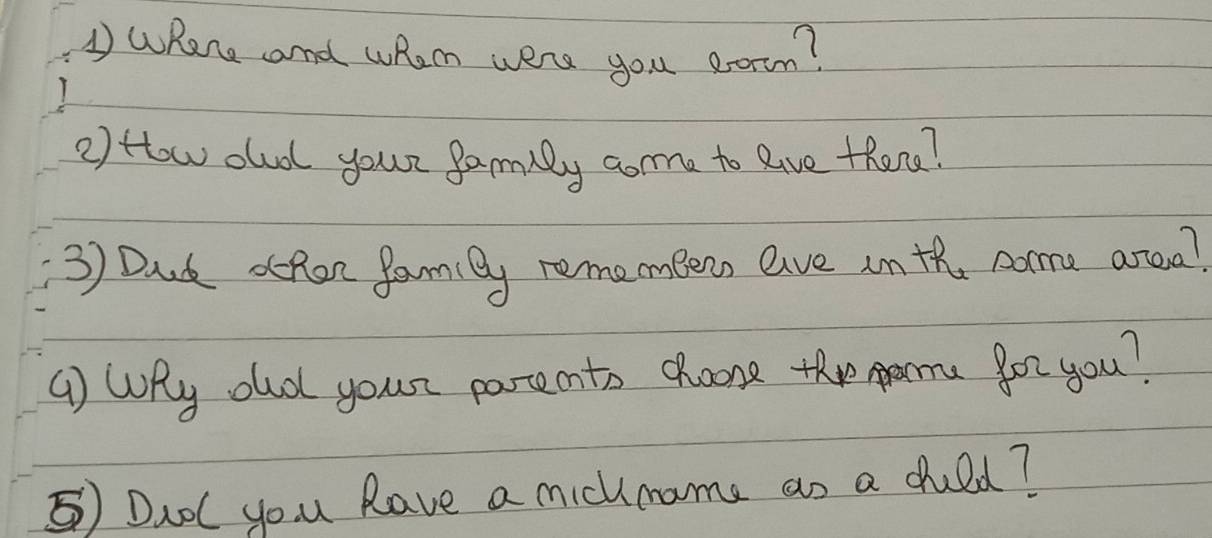 1) Where and when were you born?
2) How did your family come to live there?
3) Did other family remembers live in the same area?
4) Why did your parents choose this name for you?
5) Did you have a nickname as a child?